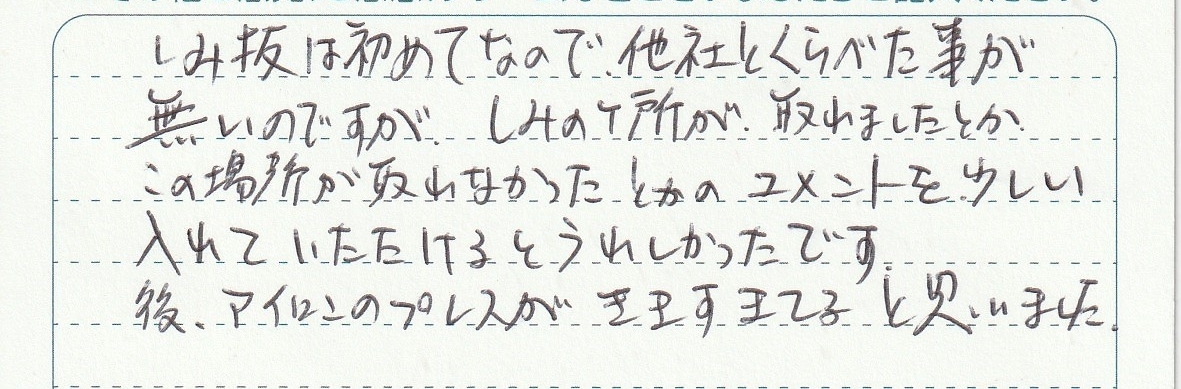 しみ抜は初めてなので、他社とくらべた事が
無いのですが、しみのケ所が、取れましたとか、
この場所が取れなかったとかのコメントを少しい
入れていただけるとうれしかったです。
後、アイロンのプレスがきますまてると思いました。